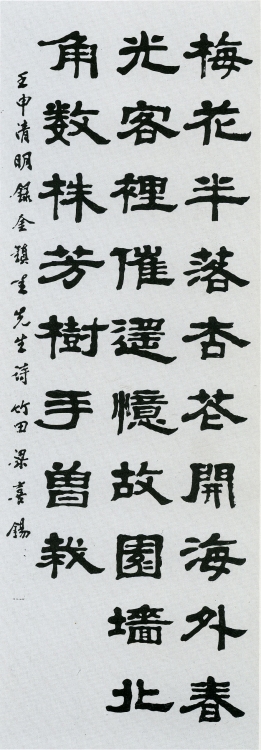 梅花半落杏花開海外春
光客裡催遥憶故園墻北
角数株芳樹手曽栽
壬申清明録金鎮圭先生詩竹田梁喜錫